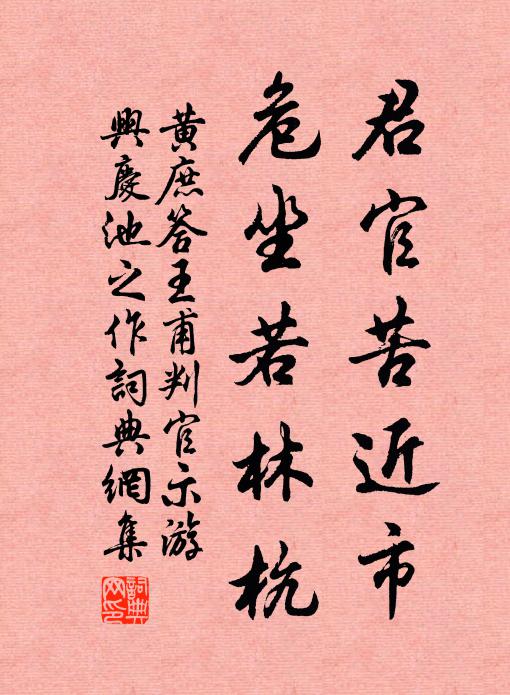 君官苦近市
危坐若林杭
黃庶答王甫判官示游
興慶池之作詞典網集
詞典網印